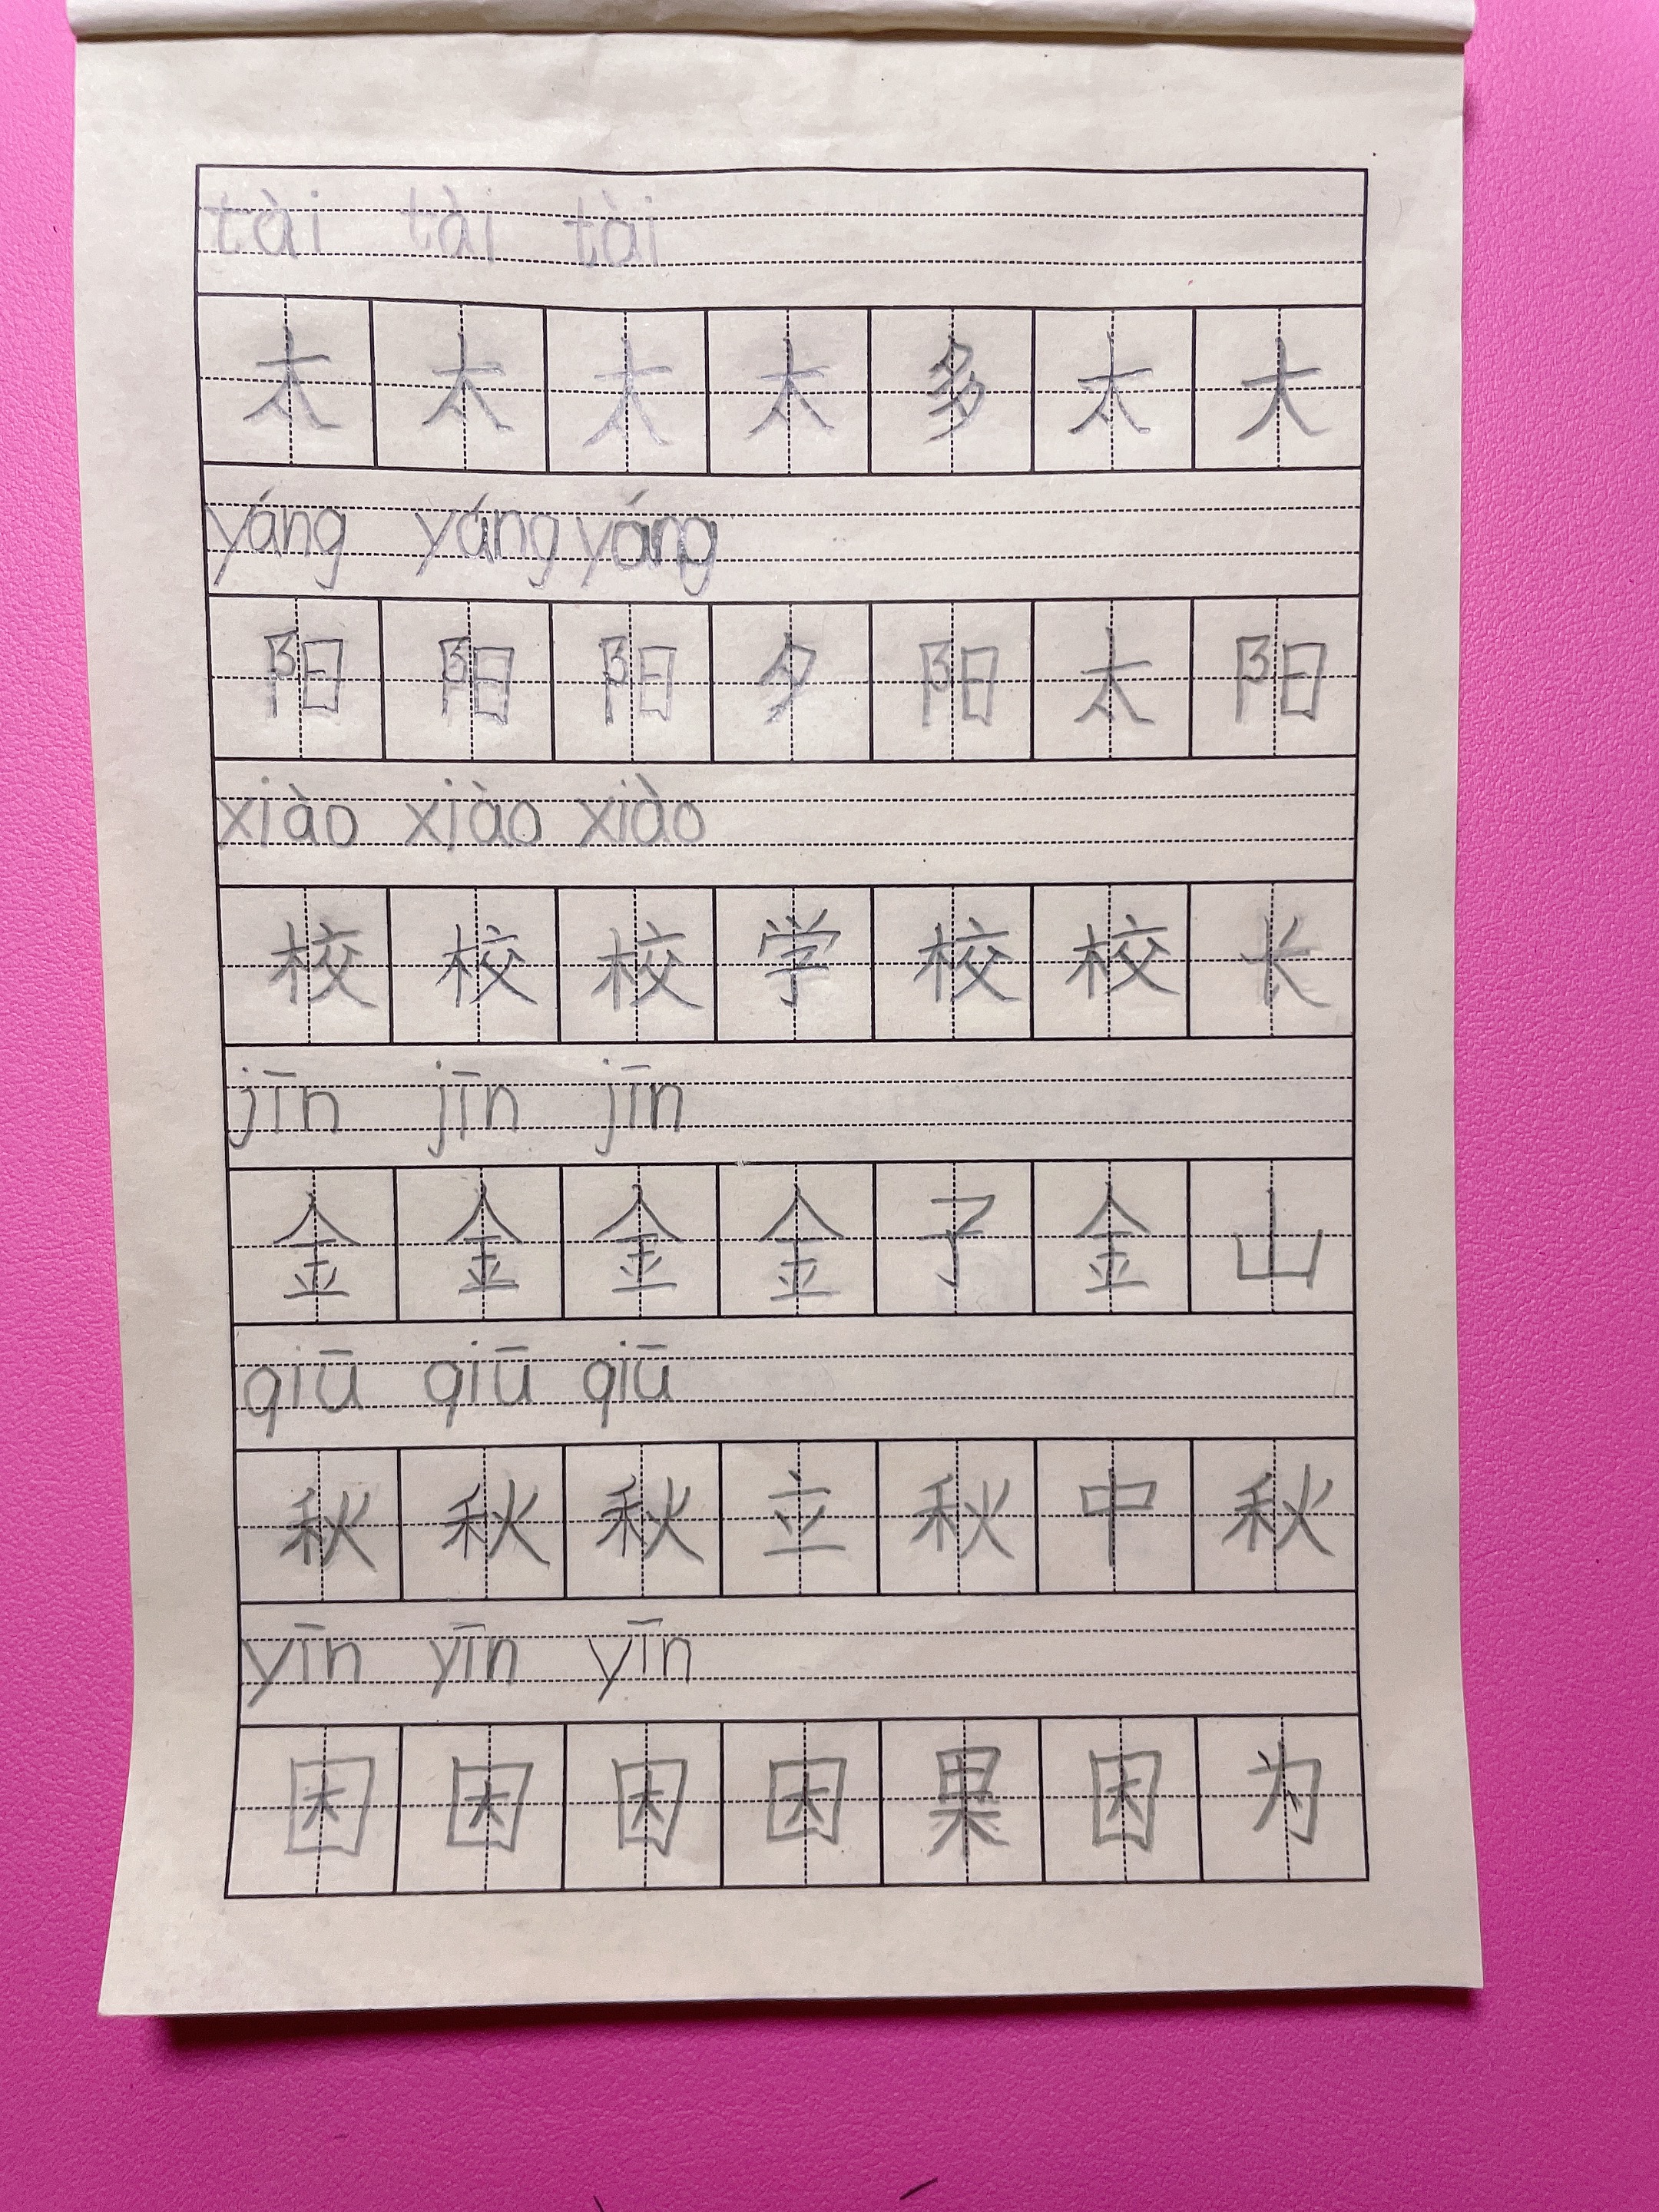 tài tài tài
太 太 太 太 多 太 大
yáng yáng yáng
阳 阳 阳 夕 阳 太 阳
xiào xiào xiào
校 校 校 学 校 校 长
jīn jīn jīn
金 金 金 金 子 金 山
qiū qiū qiū
秋 秋 秋 立 秋 中 秋
yīn yīn yīn
因 因 因 因 果 因 为